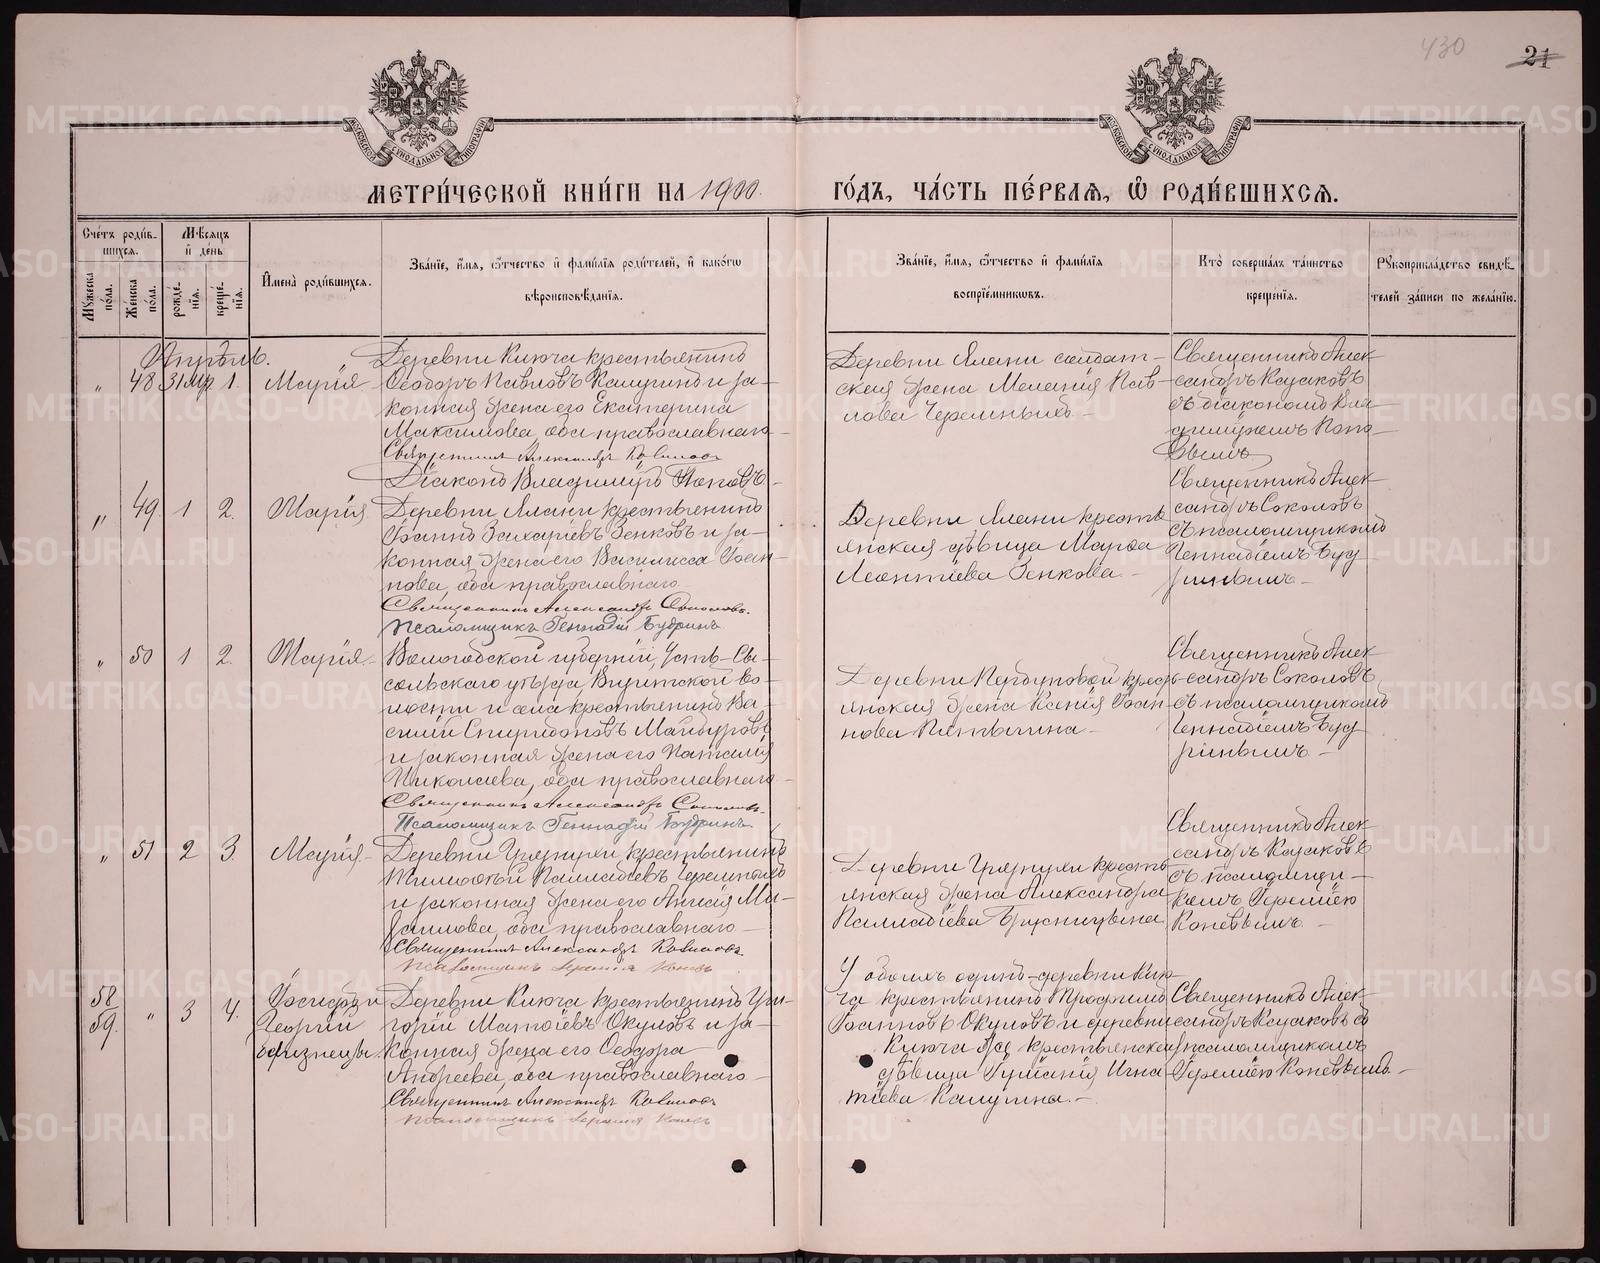 430
21
МЕТРИ́ЧЕСКОЙ КНИ́ГИ НА 1900.
ГО́ДЪ, ЧА́СТЬ ПЕ́РВАѦ, Ѽ РОДИ́ВШИХСѦ.
Сче́тъ роди́в-
шихсѧ.
Мꙋжеска по́ла.
Же́нска по́ла.
Мѣ́сѧцъ
и҆ де́нь
рожде́нїѧ.
креще́нїѧ.
И҆мена̀ роди́вшихсѧ.
Зва́нїе, и҆́мѧ, ѻ҆́тчество и҆ фами́лїѧ роди́телей, и҆ како́гѡ
вѣроисповѣ́данїѧ.
Зва́нїе, и҆́мѧ, ѻ҆́тчество и҆ фами́лїѧ
воспрїе́мникѡвъ.
Кто̀ соверша́лъ та́инство
креще́нїѧ.
Рꙋкоприкла́дство свидѣ́-
телей за́писи по жела́нїю.
Апрѣль.
„ 48 31 Мар 1. Марія
Деревни Ключа крестьянинъ
Ѳеодоръ Павловъ Калугинъ и за-
конная жена его Екатерина
Максимова, оба православнаго
Священникъ Александръ Казаковъ
Діаконъ Владиміръ Поповъ
Деревни Алани солдат-
ская жена Меланія Пав-
лова Черемныхъ
Священникъ Алек-
сандръ Казаковъ
съ діакономъ Вла-
диміромъ Попо-
вымъ
„ 49. 1 2. Марія
Деревни Алани крестьянинъ
Іоаннъ Захаріевъ Зенковъ и за-
конная жена его Василисса Іоан-
нова, оба православнаго
Священникъ Александръ Соколовъ.
Псаломщикъ Геннадій Будринъ
Деревни Алани кресть-
янская дѣвица Марѳа
Леонтіева Зенкова
Священникъ Алек-
сандръ Соколовъ
съ псаломщикомъ
Геннадіемъ Буд-
ринымъ
„ 50 1 2. Марія
Вологодской губерніи, Усть-Сы-
сольскаго уѣзда, во-
лости и села крестьянинъ Ва-
силій Спиридоновъ Майбуровъ
и законная жена его Наталія
Николаева, оба православнаго
Священникъ Александръ Соколовъ
Псаломщикъ Геннадій Будринъ
Деревни крест-
янская жена Ксенія Іоан-
нова
Священникъ Алек-
сандръ Соколовъ
съ псаломщикомъ
Геннадіемъ Буд-
ринымъ
„ 51 2 3. Марія
Деревни Грязнухи крестьянинъ
Тимоѳей Палладіевъ Черемныхъ
и законная жена его Анисія Ми-
хаилова, оба православнаго
Священникъ Александръ Казаковъ
Псаломщикъ Іеремія Коневъ
Деревни Грязнухи кресть-
янская жена Александра
Палладіева Брусницына
Священникъ Алек-
сандръ Казаковъ
съ псаломщи-
комъ Іереміею
Коневымъ
58
59. „ 3 4. и
Георгій
близнецы
Деревни Ключа крестьянинъ Гри-
горій Матѳіевъ Окуловъ и за-
конная жена его Ѳеодора
Андреева, оба православнаго
Священникъ Александръ Казаковъ
Псаломщикъ Іеремія Коневъ
У обоихъ одинъ деревни Клю-
ча крестьянинъ Трофимъ
Іоанновъ Окуловъ и деревни
Ключа же крестьянская
дѣвица Игна-
тіева Калугина.
Священникъ Алек-
сандръ Казаковъ съ
псаломщикомъ
Іереміею Коневымъ
METRIKI.GASO-URAL.RU